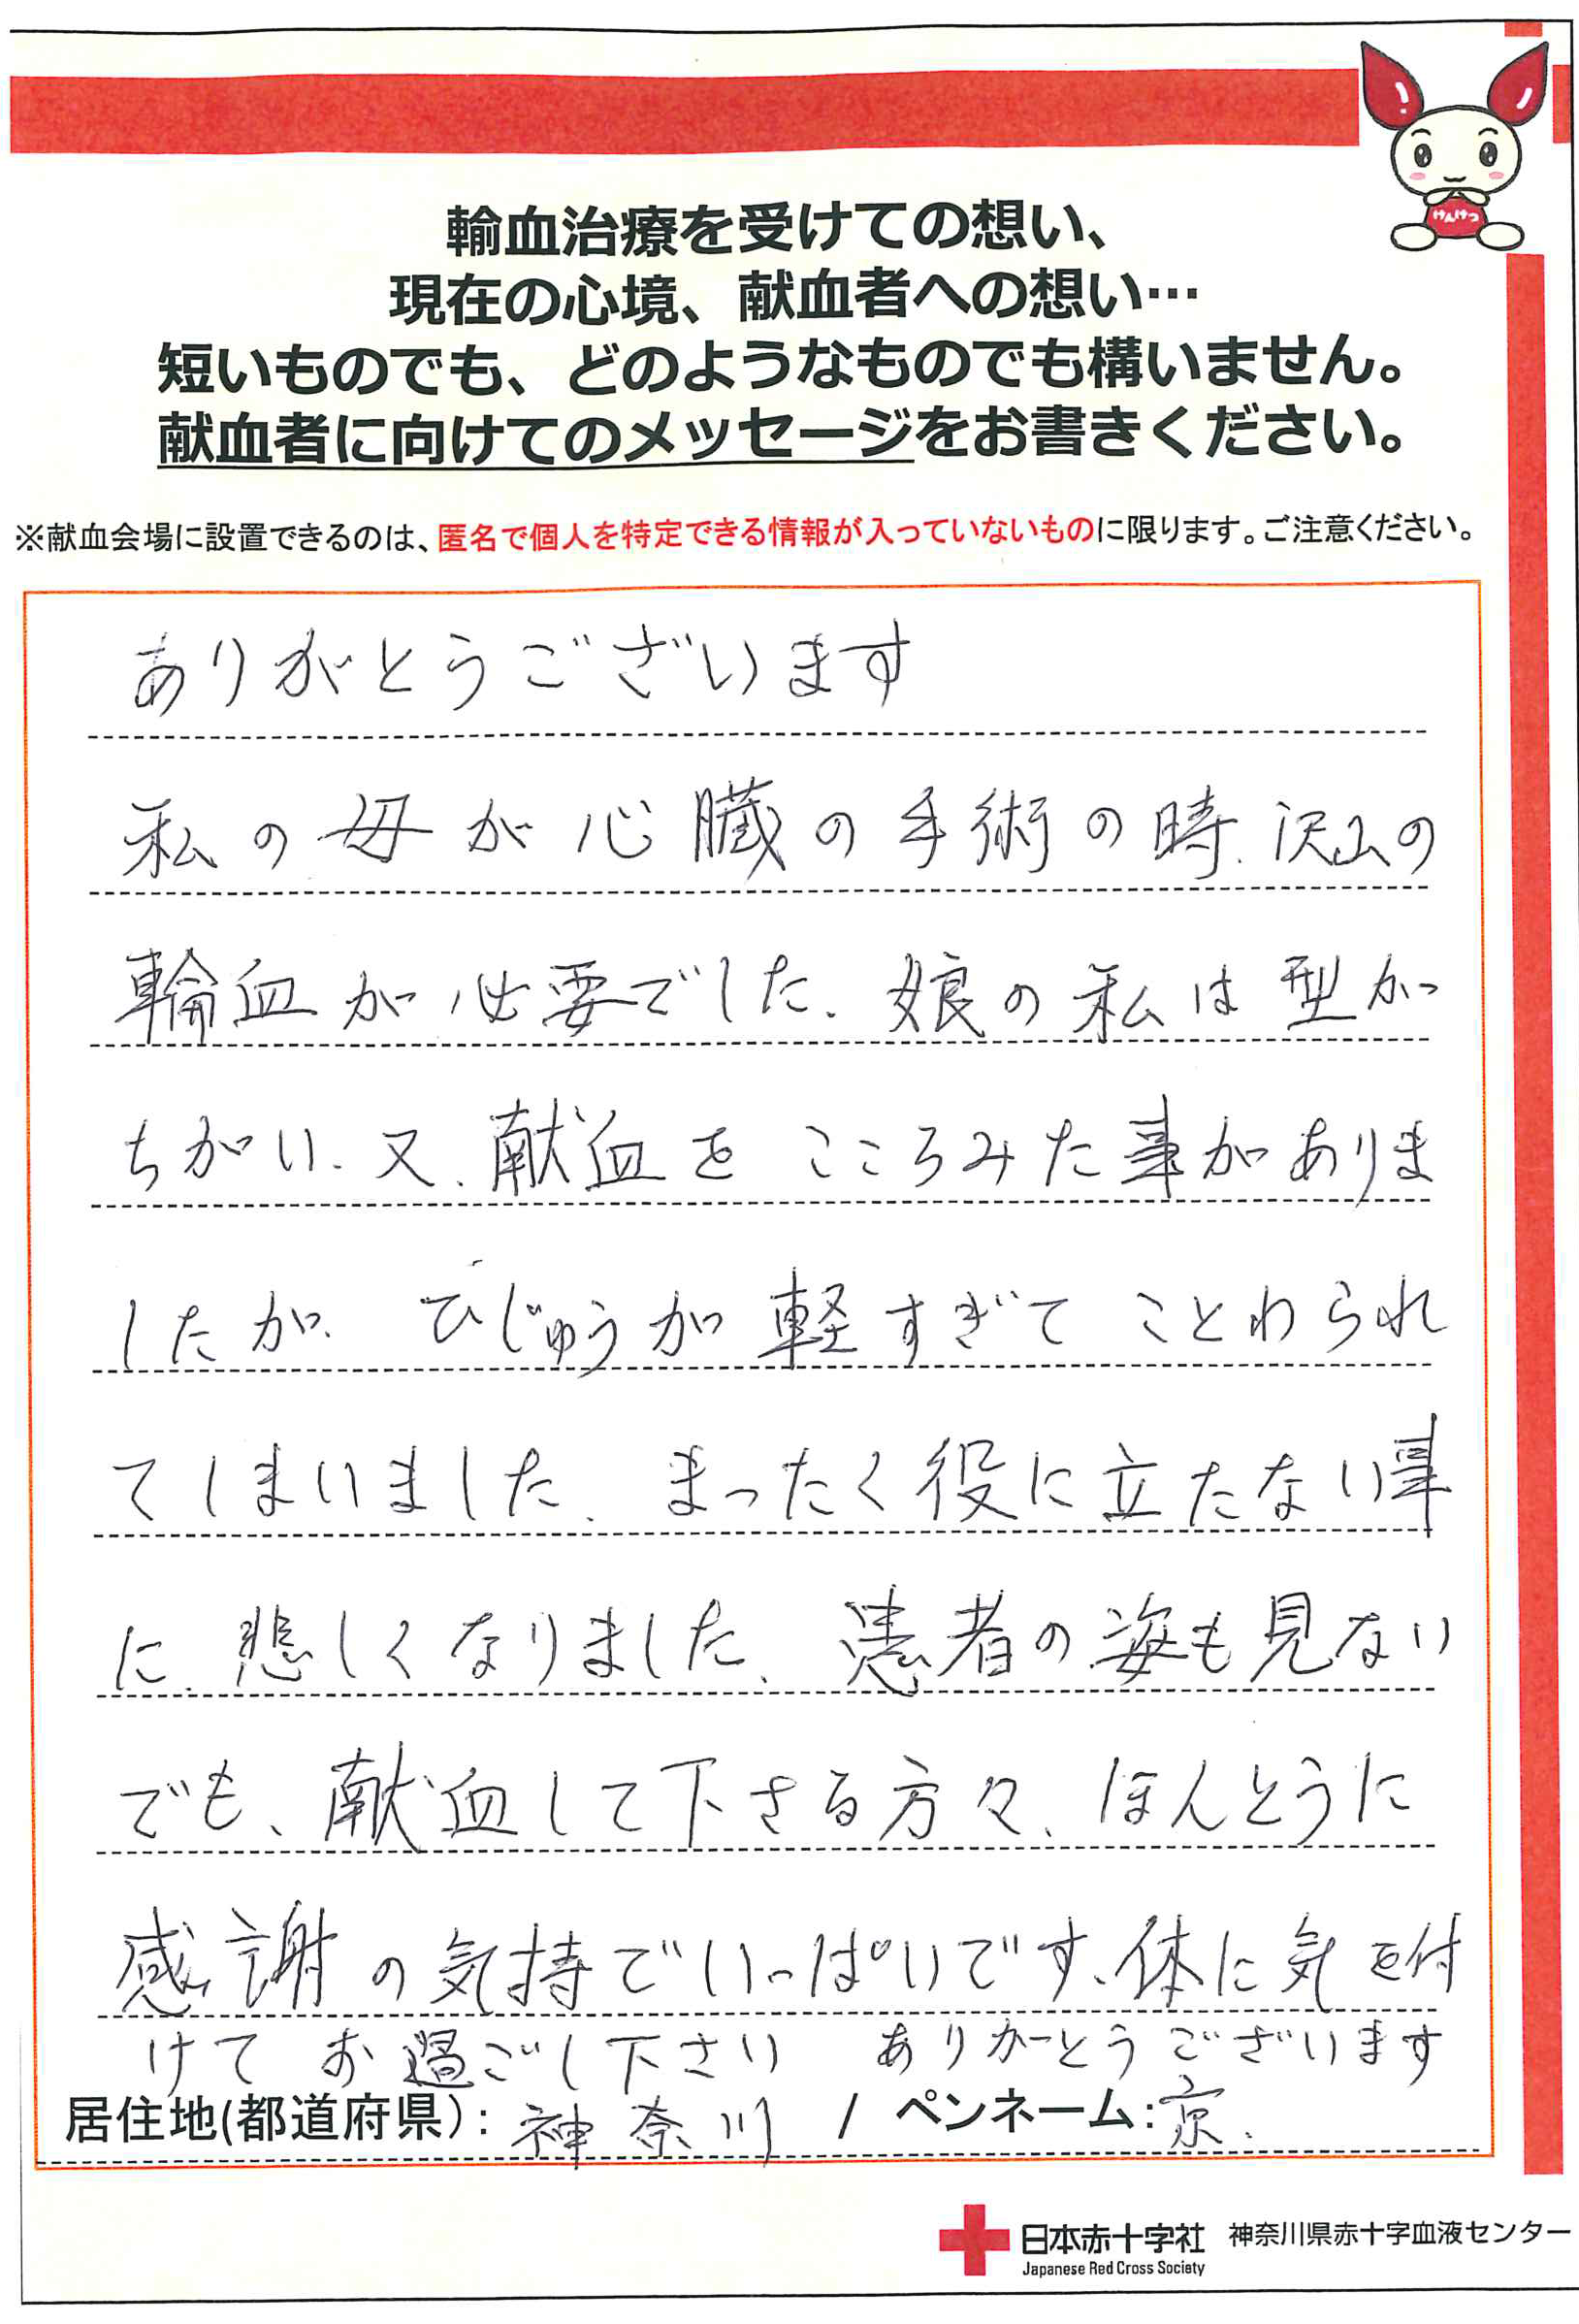 けんけつ
輸血治療を受けての想い、
現在の心境、献血者への想い…
短いものでも、どのようなものでも構いません。
献血者に向けてのメッセージをお書きください。
※献血会場に設置できるのは、匿名で個人を特定できる情報が入っていないものに限ります。ご注意ください。
ありがとうございます
私の母が心臓の手術の時、沢山の
輸血が必要でした。娘の私は型が
ちがい、又、献血をこころみた事がありま
したが、ひじゅうが軽すぎてことわられ
てしまいました。まったく役に立たない事
に、悲しくなりました。患者の姿も見ない
でも、献血して下さる方々、ほんとうに
感謝の気持でいっぱいです、体に気を付
けてお過ごし下さい ありがとうございます
居住地(都道府県): 神奈川 / ペンネーム:京.
日本赤十字社 神奈川県赤十字血液センター
Japanese Red Cross Society